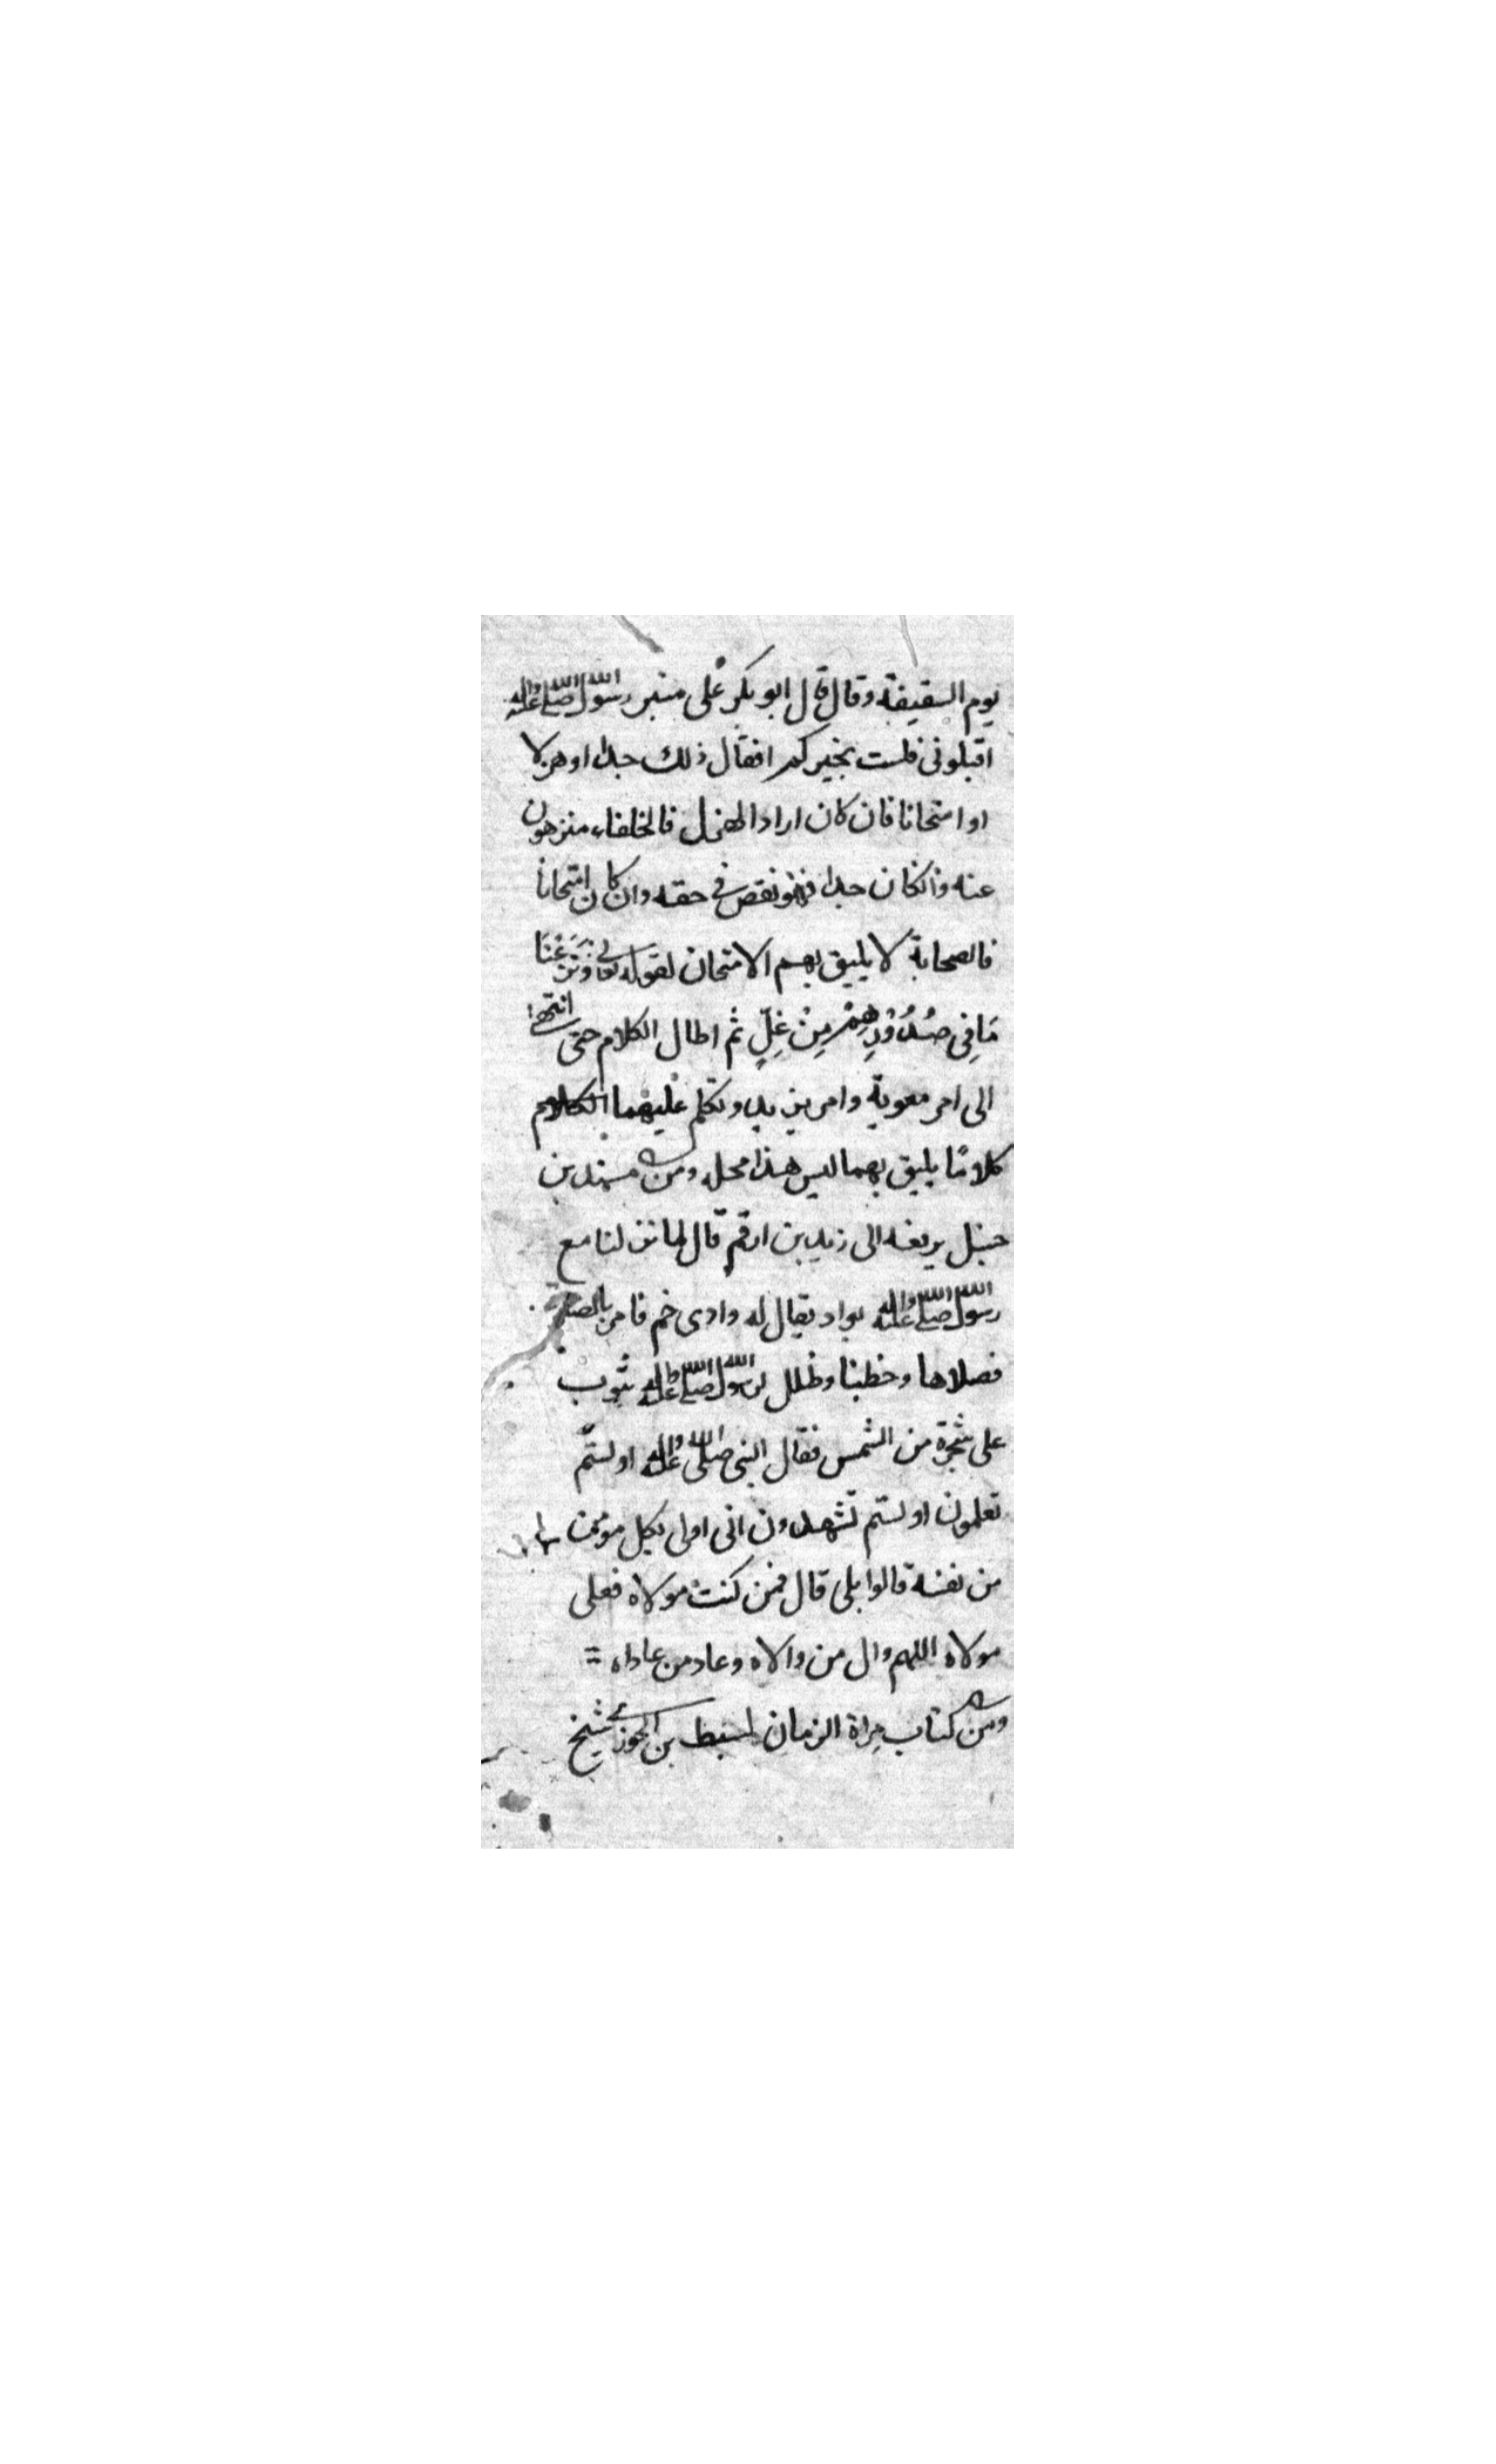 يوم السقيفة وقال قال ابو بكر على منبر رسول الله صلى الله عليه واله
اقيلونى فلست بخيركم افقال ذلك جدا او هزلا
او امتحانا فان كان اراد الهزل فالخلفاء منزهون
عنه وانكان جدا فهو نقص فى حقه وان كان امتحانا
فالصحابة لا يليق بهم الامتحان لقوله تعالى وَنَزَعْنَا
مَا فِى صُدُوْرِهِمْ مِنْ غِلٍّ ثم اطال الكلام حتى انتهى
الى امر معوية وامر يزيد وتكلم عليهما
كلامًا يليق بهما ليس هذا محله ومن مسند بن
حنبل يرفعه الى زيد بن ارقم قال لما نزلنا مع
رسول الله صلى الله عليه واله بواد يقال له وادى خم فامر بالصلوة
فصلاها وخطبنا وظلل لرسول الله صلى الله عليه واله بثوب
على شجرة من الشمس فقال النبى صلى الله عليه واله اولستم
تعلمون اولستم تشهدون انى اولى بكل مومن
من نفسه قالوا بلى قال فمن كنت مولاه فعلى
مولاه اللهم وال من والاه وعاد من عاداه
ومن كتاب مراة الزمان لسبط بن الجوزى شيخ